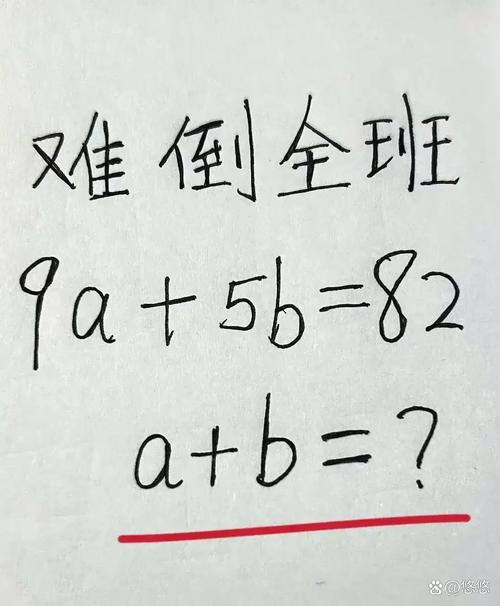 难倒全班
9a+5b=82
a+b=?
悠悠